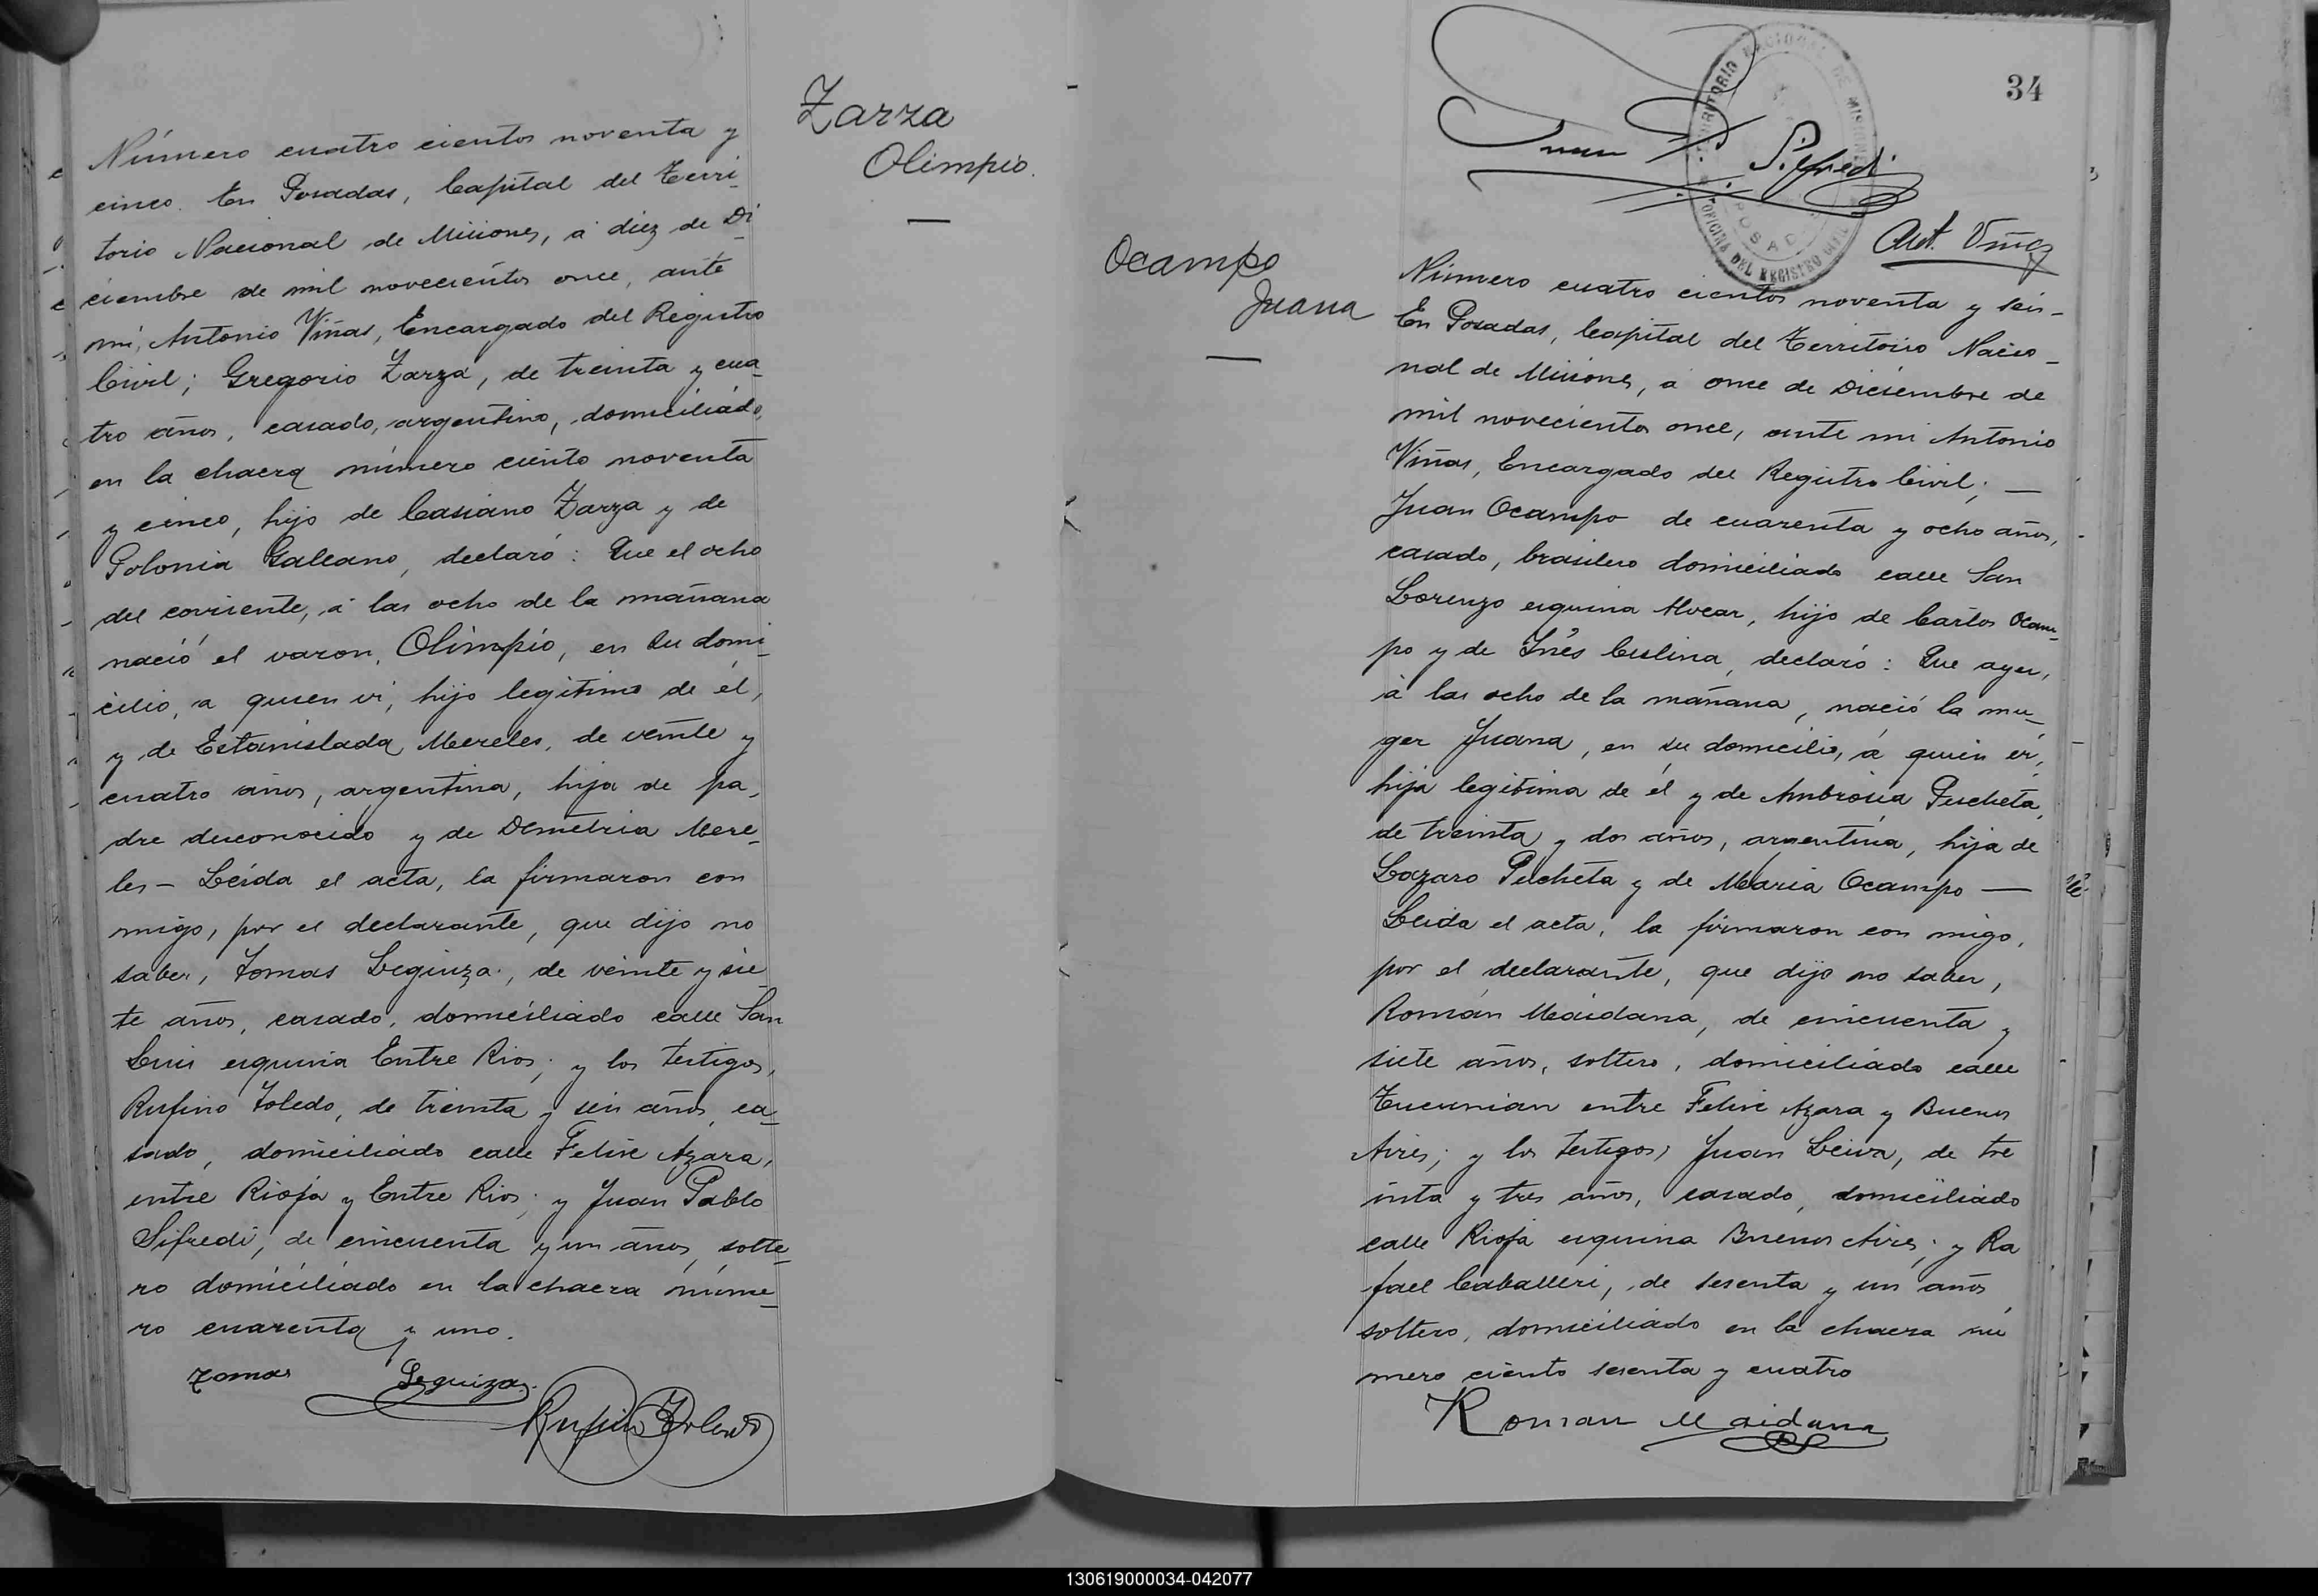 Zarza
Olimpio.
Número cuatro cientos noventa y
cinco. En Posadas, Capital del Terri-
torio Nacional de Misiones, á diez de Di
ciembre de mil novecientos once, ante
mi, Antonio Viñas, Encargado del Registro
Civil; Gregorio Zarza, de treinta y cua-
tro años, casado, argentino, domiciliado,
en la chacra número ciento noventa
y cinco, hijo de Casiano Zarza y de
Polonia Galeano, declaró: Que el ocho
del corriente, á las ocho de la mañana
nació el varon, Olimpio, en su domi-
cilio, a quien vi, hijo legítimo de él,
y de Estanislada Mereles, de veinte y
cuatro años, argentina, hija de pa-
dre desconocido y de Demetria Mere-
les - Leida el acta, la firmaron con
migo, por el declarante, que dijo no
saber, Tomas Leguiza., de veinte y sie-
te años, casado, domiciliado calle San
Luis esquina Entre Rios; y los testigos,
Rufino Toledo, de treinta y seis años, ca-
sado, domiciliado calle Felix Azara,
entre Rioja y Entre Rios; y Juan Pablo
Sifredi, de cincuenta y un años, solte-
ro domiciliado en la chacra núme-
ro cuarenta y uno.
Tomas Leguiza.
Rufino Toledo
34
Juan P. Sifredi
TERRITORIO NACIONAL DE MISIONES
POSADAS
OFICINA DEL REGISTRO CIVIL
Ant. Viñas
Ocampo
Juana
Número cuatro cientos noventa y seis -
En Posadas, Capital del Territorio Nacio-
nal de Misiones, á once de Diciembre de
mil novecientos once, ante mi Antonio
Viñas, Encargado del Registro Civil; —
Juan Ocampo de cuarenta y ocho años,
casado, brasilero domiciliado calle San
Lorenzo esquina Alvear, hijo de Carlos Ocam-
po y de Inés, declaró: Que ayer,
á las ocho de la mañana, nació la mu-
ger Juana, en su domicilio, á quien vi,
hija legítima de él y de Ambrosia Pucheta,
de treinta y dos años, argentina, hija de
Lazaro Pucheta y de Maria Ocampo —
Leida el acta, la firmaron con migo,
por el declarante, que dijo no saber,
Román Maidana, de cincuenta y
siete años, soltero, domiciliado calle
Tucuman entre Felix Azara y Buenos
Aires; y los testigos, Juan Leiva, de tre
inta y tres años, casado, domiciliado
calle Rioja esquina Buenos Aires; y Ra
fael Caballeri, de sesenta y un años,
soltero, domiciliado en la chacra nú
mero ciento sesenta y cuatro
Roman Maidana
130619000034-042077